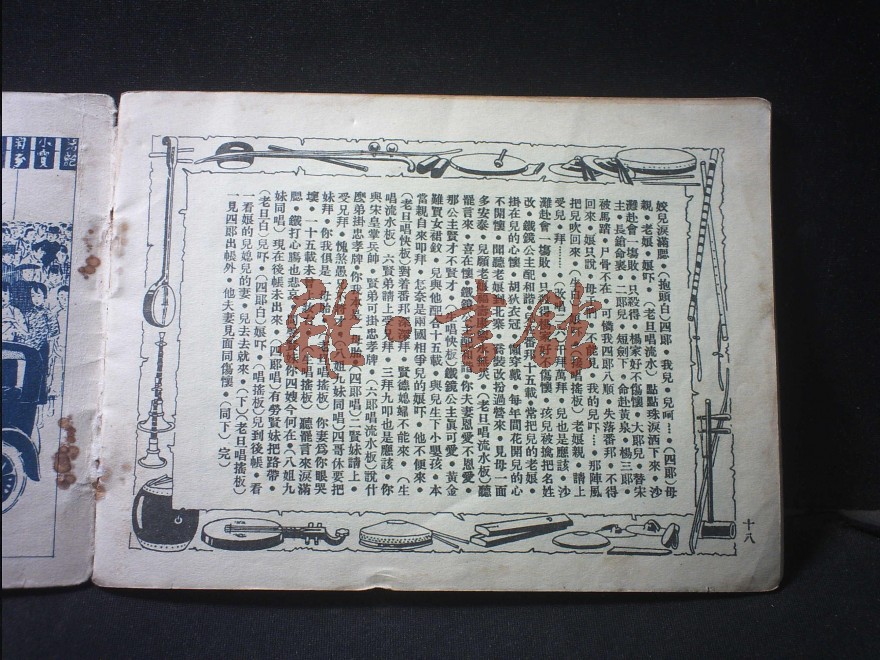 姣兒淚滿腮・(抱頭白)四郎・我兒・兒呵…・(四郎)母
親・老娘・娘吓・(老旦唱流水)點點珠淚洒下來・沙
灘赴會一塲敗・只殺得・楊家好不傷懷・大郎兒・替宋
主・長鎗命裏・二郎兒・短劍下・命赴黃泉・楊三郎・
被馬踏・尸骨不在・可憐我四郎八順・失落番邦・不得
回來・娘只說・母子們・不能見・我的兒吓…那陣風
把兒吹來・(生 唱搖板)老娘親・請上
受兒・拜…… 千拜萬拜・兒也是應該・沙
灘赴會一塲敗・只殺得楊家好不傷懷・孩兒被擒把名姓
改・鐵鏡公主配和諧・番邦十五載・常把兒的老娘・
掛在兒的心懷・胡狄衣冠・懶穿戴・每年間花開兒的心
不開懷・聞聽老娘到北寨・喬裝改扮過營來・見母一面
多安泰・兒願老娘福壽康寧永無災・(老旦唱流水板)聽
罷言來・喜在懷・鐵鏡 你夫妻恩愛不恩愛・
那公主賢才不賢才・(生唱快板)鐵鏡公主眞可愛・黃金
難買女裙釵・兒與他匹合十五載・與兒生下小嬰孩・本
當親自來叩拜・怎奈是兩國相爭兒的娘吓・他不便來・
(老旦唱快板)對着番邦深深拜・賢德媳婦不能來・(生
唱流水板)六賢弟請上受兄拜・三拜九叩也是應該・你
與宋皇掌兵帥・賢弟可掛忠孝牌・(六郎唱流水板)說什
麽弟掛忠孝牌・你我本是一母胎・(四郎唱)二賢妹請上・
受兄拜・愧煞愚 (八姐九妹同唱)四哥休要把
妹拜・你我俱是一母胎・(老旦唱搖板)你妻爲你眼哭
壞・一十五載未曾 (生唱搖板)聽罷言來淚滿
腮・鐵打心腸也悲哀・ 你四嫂今何在・(八姐九
妹同唱)現在後帳未出來・(四郎唱)有勞賢妹把路帶・
(老旦白)兒吓・(四郎白)娘吓・(唱搖板)兒到後帳・看
一看娘的兒媳兒的妻・兒去去就來・(下)(老旦唱搖板)
一見四郎出帳外・他夫妻見面同傷懷・(同下)完)
十八
書館